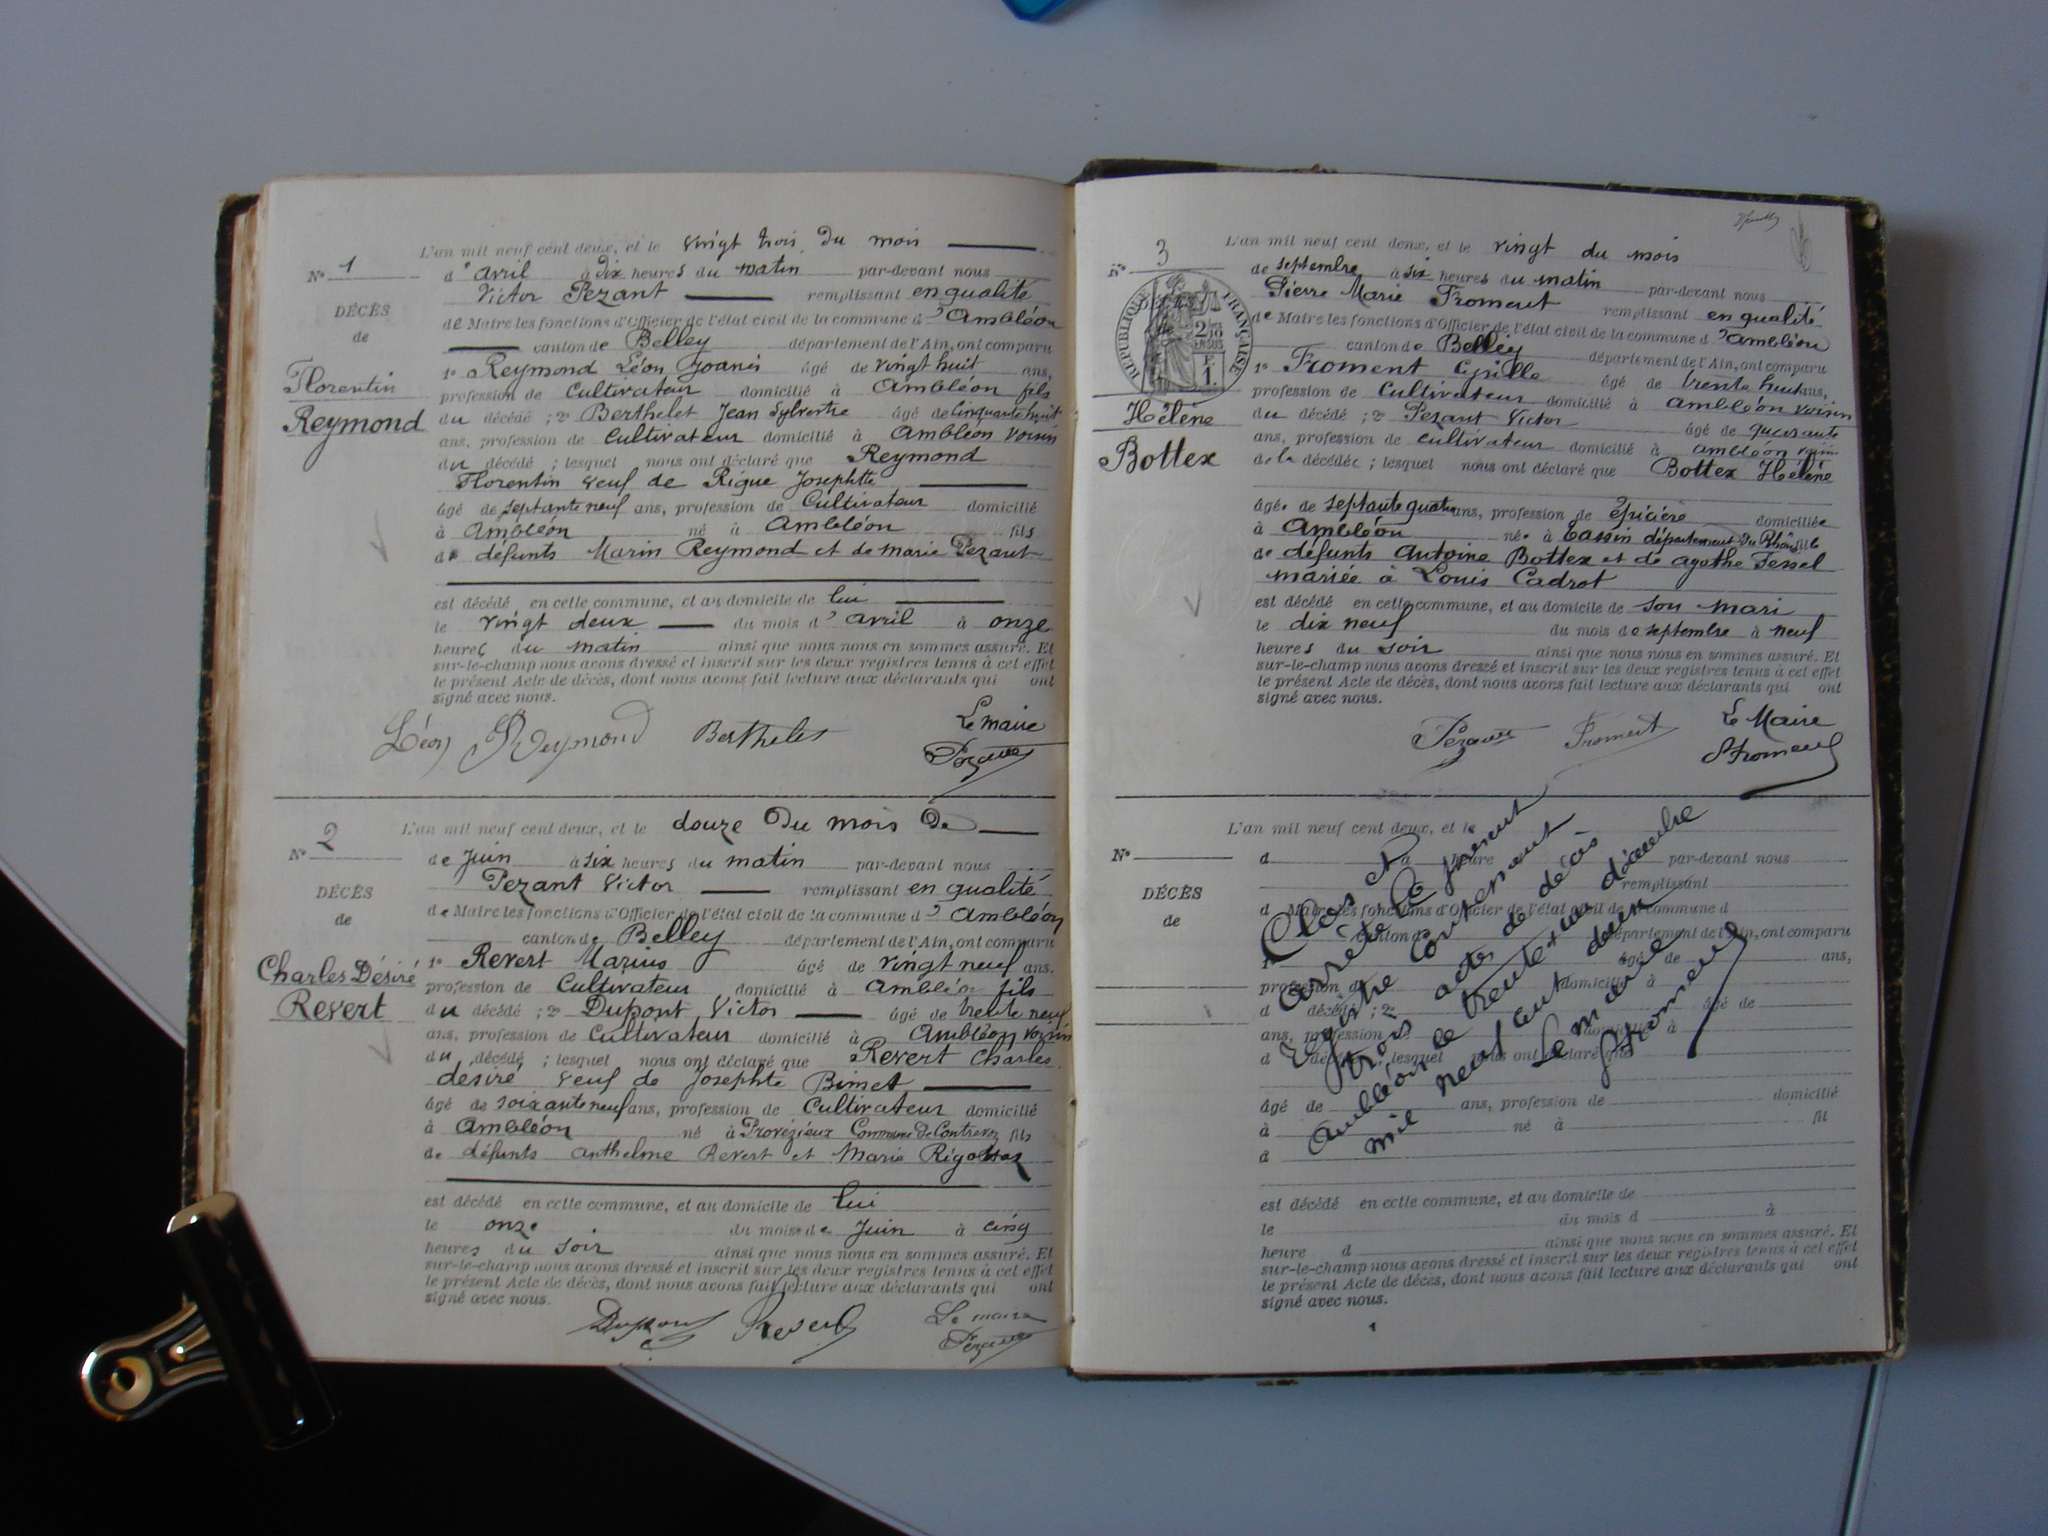 L'an mil neuf cent deux, et le vingt trois du mois
N° 1
d'avril à dix heures du matin par-devant nous
Victor Pezant remplissant en qualité
DÉCÈS
de Maire les fonctions d'Officier de l'état civil de la commune d'Ambléon
de
canton de Belley département de l'Ain, ont comparu
1° Reymond Léon Joanès âgé de vingt huit ans,
Florentin
profession de Cultivateur domicilié à Ambléon fils
Reymond
du décédé ; 2° Berthelet Jean Sylvestre âgé de Cinquante huit
ans, profession de Cultivateur domicilié à Ambléon voisin
du décédé ; lesquel nous ont déclaré que Reymond
Florentin veuf de Rigue Josephtte
âgé de septante neuf ans, profession de Cultivateur domicilié
à Ambléon né à Ambléon fils
de défunts Marin Reymond et de marie Pezant
est décédé en cette commune, et au domicile de lui
le vingt deux du mois d'avril à onze
heures du matin ainsi que nous nous en sommes assuré. Et
sur-le-champ nous avons dressé et inscrit sur les deux registres tenus à cet effet
le présent Acte de décès, dont nous avons fait lecture aux déclarants qui ont
signé avec nous.
Léon Reymond Berthelet Le maire
Pezant
L'an mil neuf cent deux, et le douze du mois de
N° 2
de Juin à six heures du matin par-devant nous
Pezant Victor remplissant en qualité
DÉCÈS
de Maire les fonctions d'Officier de l'état civil de la commune d'Ambléon
de
canton de Belley département de l'Ain, ont comparu
1° Revert Marius âgé de vingt neuf ans.
Charles Désiré
profession de Cultivateur domicilié à Ambléon fils
Revert
du décédé ; 2° Dupont Victor âgé de trente neuf
ans, profession de Cultivateur domicilié à Ambléon voisin
du décédé ; lesquel nous ont déclaré que Revert Charles
désiré veuf de Josephte Bimet
âgé de soixante neuf ans, profession de Cultivateur domicilié
à Ambléon né à Provézieux Commune de Contrevoz fils
de défunts Anthelme Revert et Marie
est décédé en cette commune, et au domicile de lui
le onze du mois de Juin à cinq
heures du soir ainsi que nous nous en sommes assuré. Et
sur-le-champ nous avons dressé et inscrit sur les deux registres tenus à cet effet
le présent Acte de décès, dont nous avons fait lecture aux déclarants qui ont
signé avec nous.
Dupont Revert Le maire
Pezant
L'an mil neuf cent deux, et le vingt du mois
N° 3
de septembre à six heures du matin par-devant nous
Pierre Marie Froment remplissant en qualité
RÉPUBLIQUE FRANÇAISE
de Maire les fonctions d'Officier de l'état civil de la commune d'Ambléon
canton de Belley département de l'Ain, ont comparu
1° Froment âgé de trente huit ans,
profession de Cultivateur domicilié à Ambléon voisin
Hélène
du décédé ; 2° Pezant Victor âgé de quarante
Bottex
ans, profession de cultivateur domicilié à Ambléon voisin
de la décédée ; lesquel nous ont déclaré que Bottex Hélène
âgée de septante quatre ans, profession de épicière domiciliée
à Ambléon née à Cassin département du Rhône fille
de défunts Antoine Bottex et de agathe Tessel
mariée à Louis Cadrot
est décédé en cette commune, et au domicile de son mari
le dix neuf du mois de septembre à neuf
heures du soir ainsi que nous nous en sommes assuré. Et
sur-le-champ nous avons dressé et inscrit sur les deux registres tenus à cet effet
le présent Acte de décès, dont nous avons fait lecture aux déclarants qui ont
signé avec nous.
Pezant Froment Le Maire
Froment
L'an mil neuf cent deux, et le
N°
d à heure par-devant nous
remplissant
DÉCÈS
d Maire les fonctions d'Officier de l'état civil de la commune d
de
canton de département de l'Ain, ont comparu
1° âgé de ans,
profession de domicilié à
d décédé ; 2° âgé de
ans, profession de domicilié à
d décédé ; lesquel nous ont déclaré que
âgé de ans, profession de domicilié
à né à fil
d
est décédé en cette commune, et au domicile de
le du mois d à
heure d ainsi que nous nous en sommes assuré. Et
sur-le-champ nous avons dressé et inscrit sur les deux registres tenus à cet effet
le présent Acte de décès, dont nous avons fait lecture aux déclarants qui ont
signé avec nous.
Clos et
arrêté le présent
registre contenant
trois actes de décès
Ambléon le trente et un décembre
mil neuf cent deux
Le maire
Froment